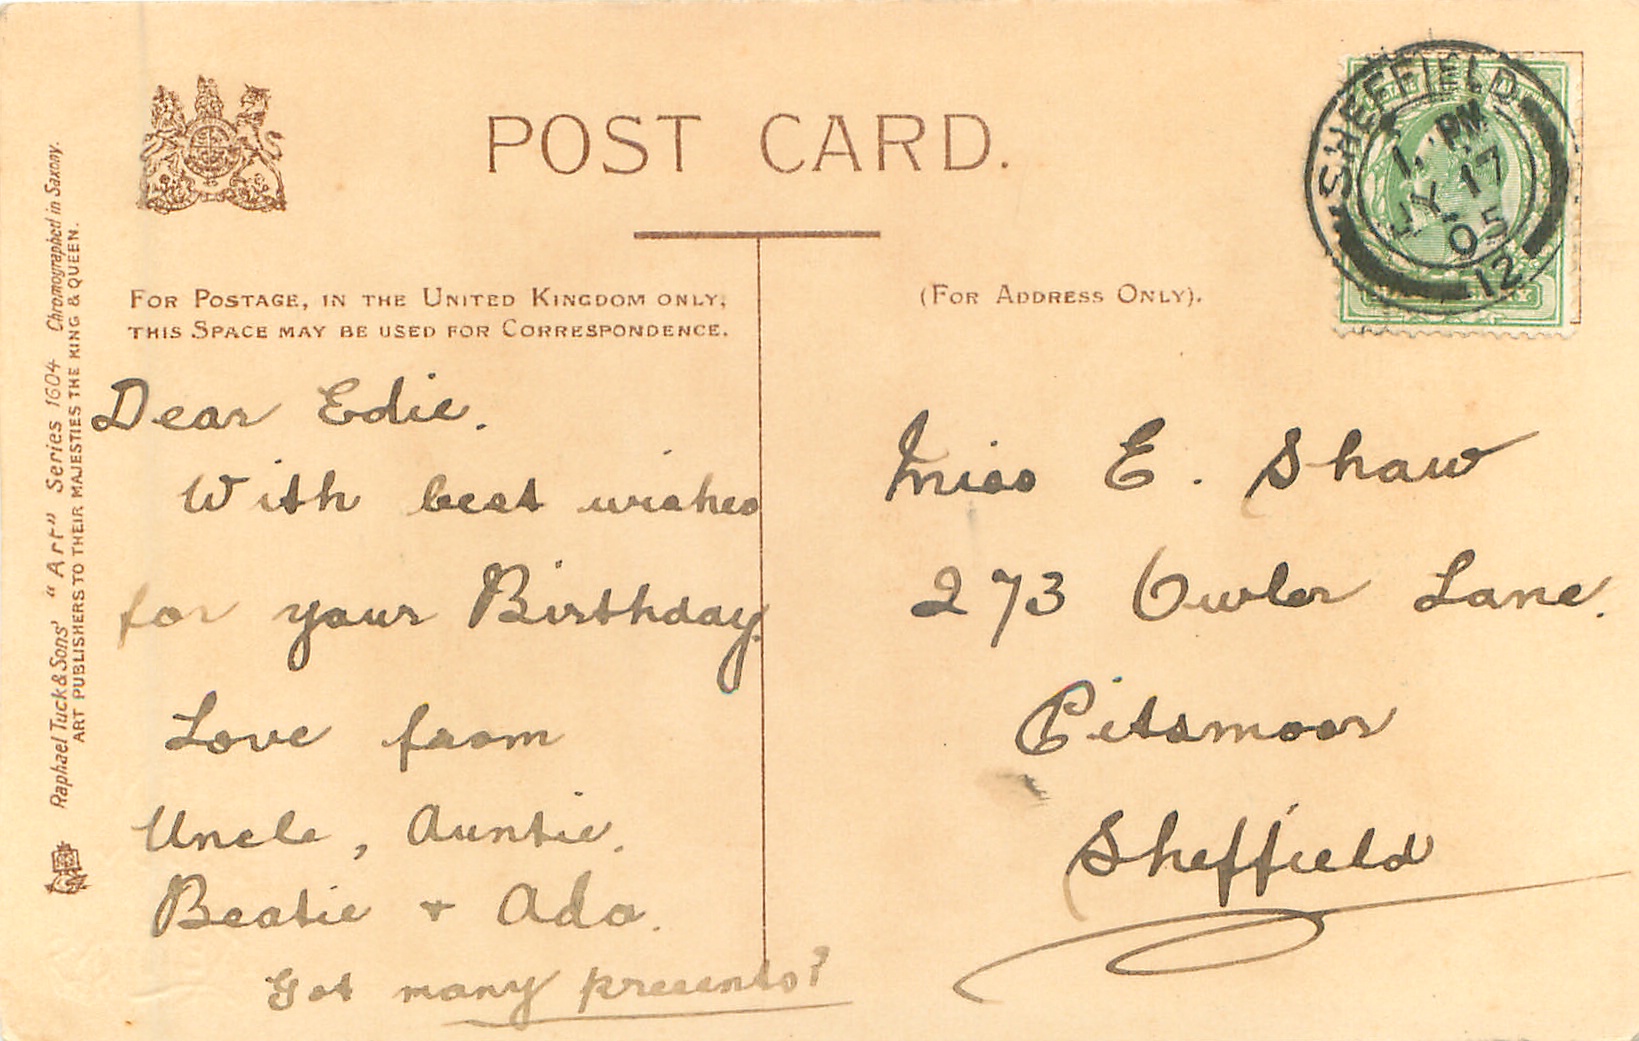 POST CARD.
FOR POSTAGE, IN THE UNITED KINGDOM ONLY,
THIS SPACE MAY BE USED FOR CORRESPONDENCE.
(FOR ADDRESS ONLY).
Raphael Tuck & Sons' "Art" Series 1604 Chromographed in Saxony.
ART PUBLISHERS TO THEIR MAJESTIES THE KING & QUEEN.
SHEFFIELD
PM
17
05
12
Dear Edie.
With best wishes
for your Birthday.
Love from
Uncle, Auntie.
Beatie + Ada.
Got many presents?
Miss E. Shaw
273 Owler Lane.
Pitsmoor
Sheffield